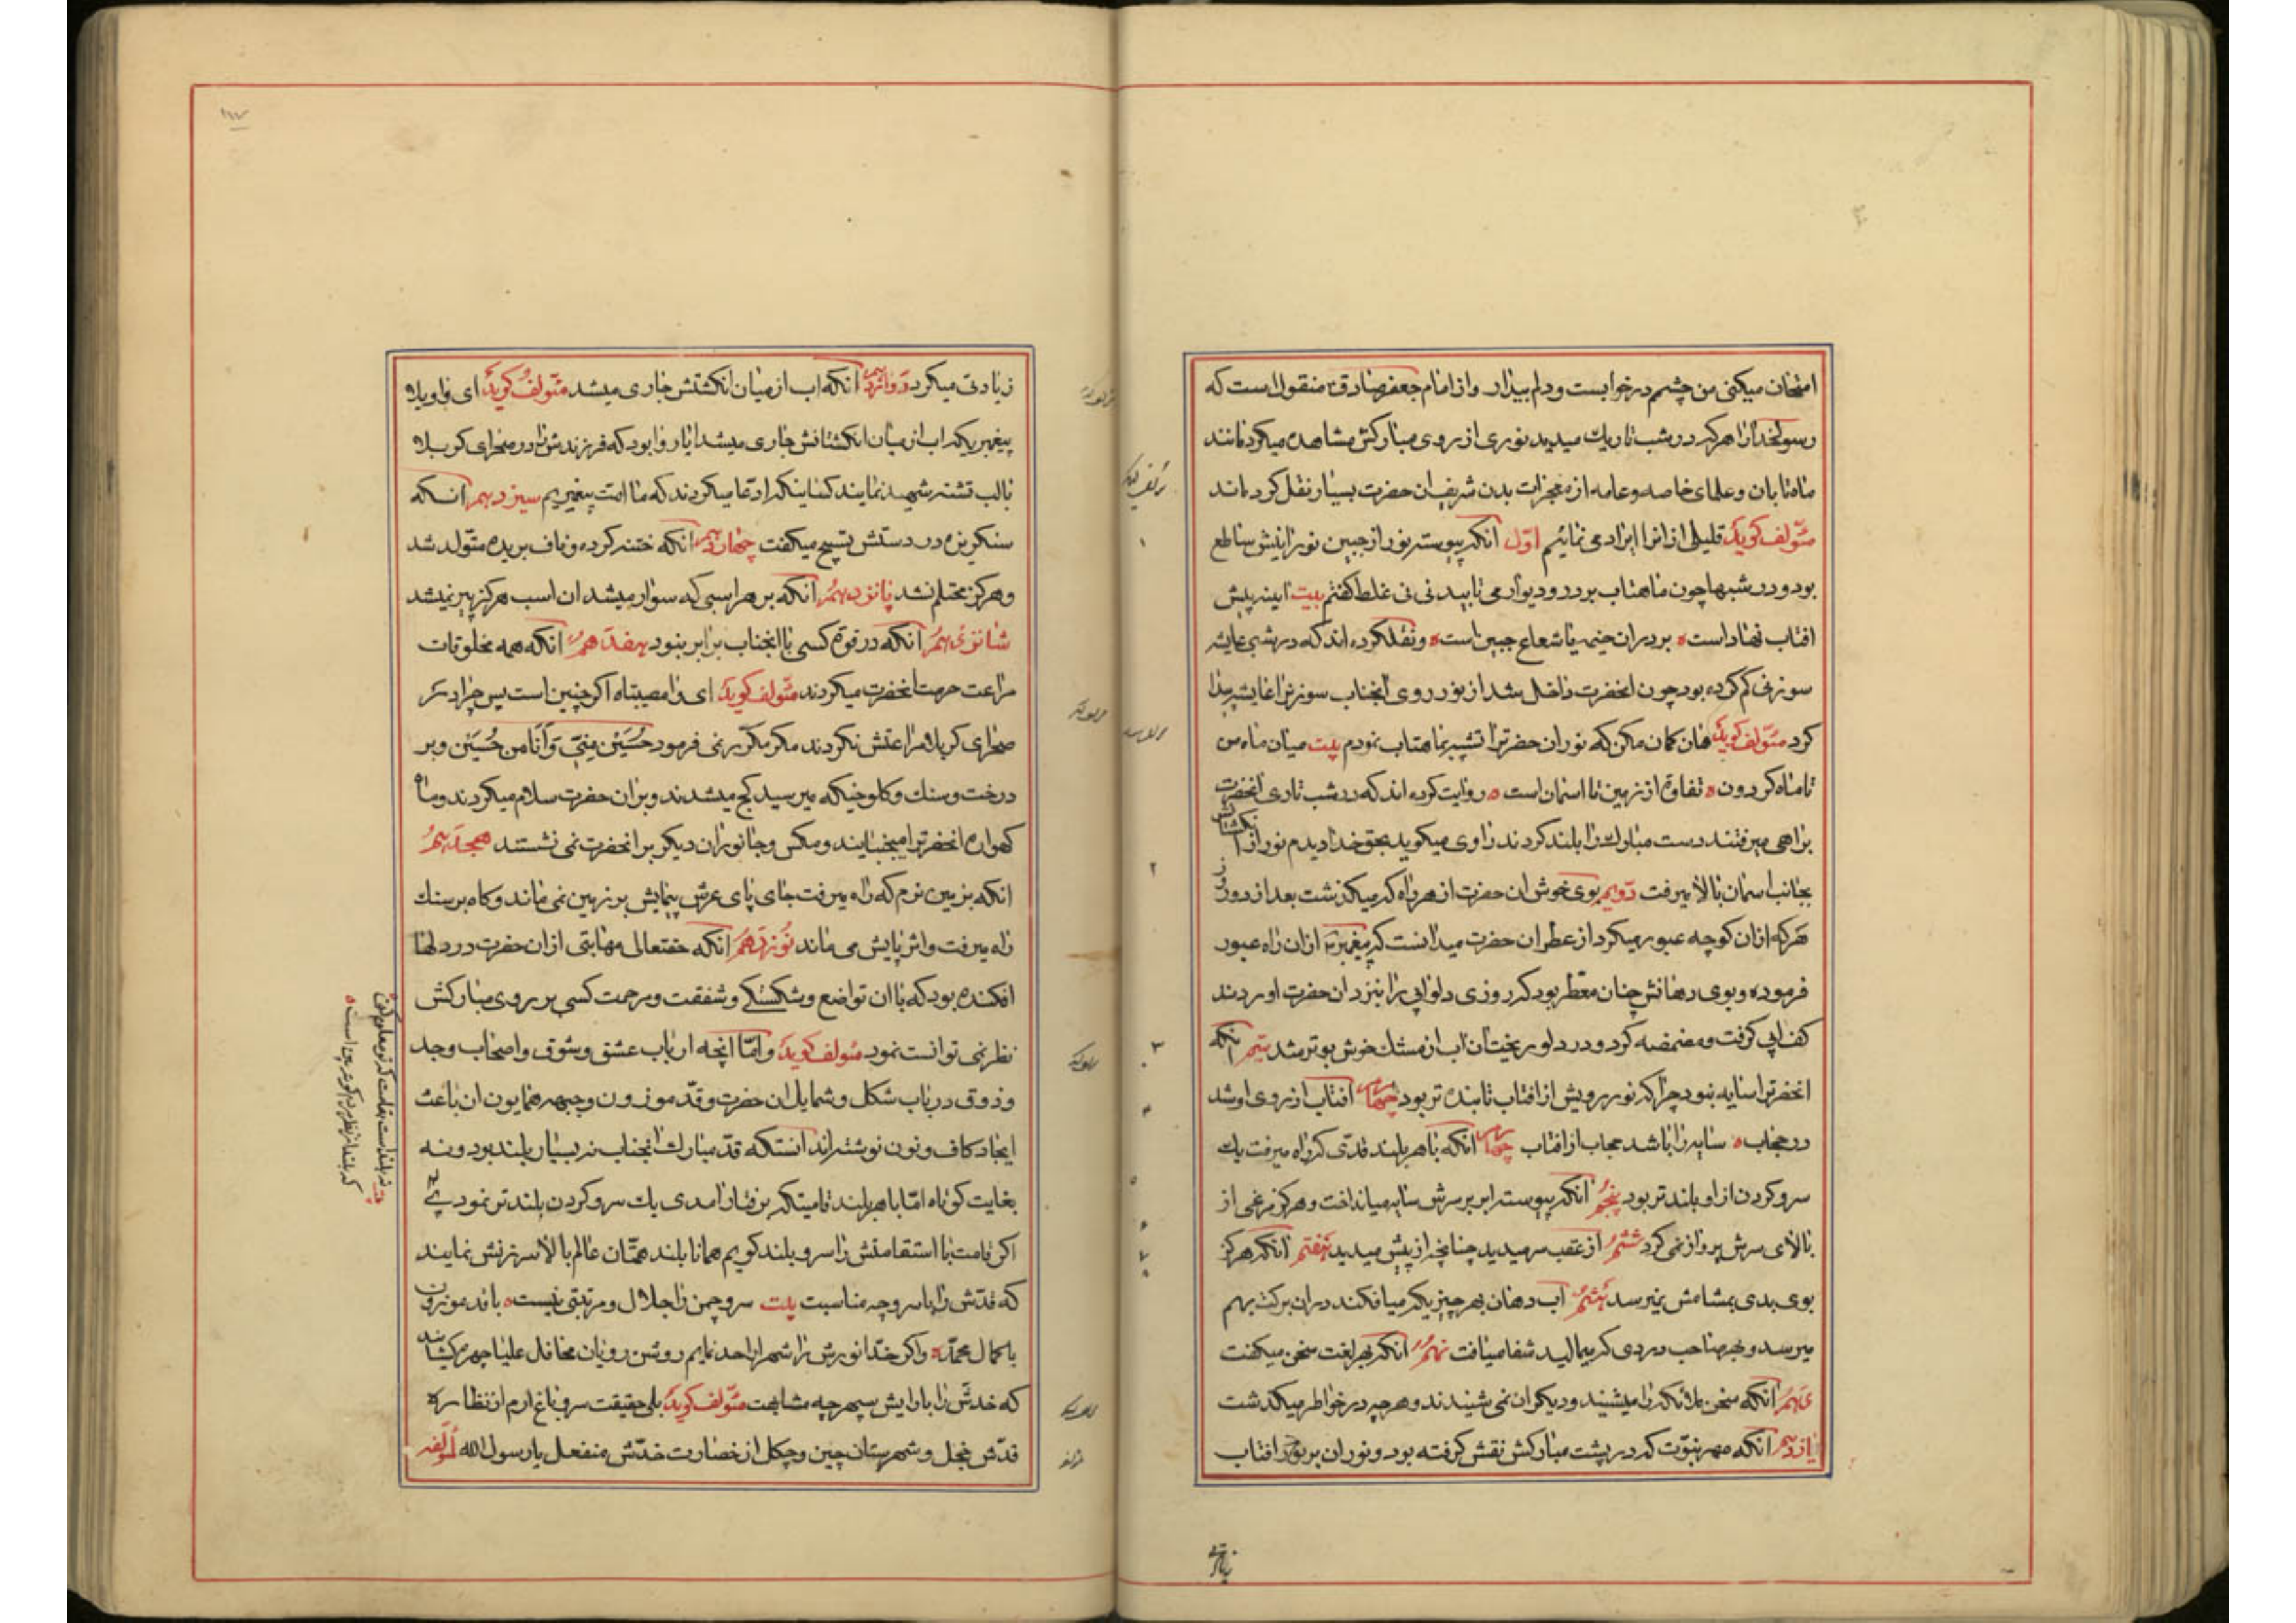 امتحان میکنی من چشمم در خوابست و دلم بیدار و از امام جعفر صادق ع منقول است که
رسولخدا را هر که در شب تاریک میدید نوری از روی مبارکش مشاهده میکرد مانند
ماه تابان و علمای خاصه و عامه از معجزات بدن شریف ان حضرت بسیار نقل کرده اند
مؤلف گوید قلیلی از انرا ایراد می نمائیم اول انکه پیوسته نور از جبین نورانیش ساطع
بود و در شبها چون ماهتاب بر در و دیوار می تابید نی نی غلط گفتم بیت اینه پیش
افتاب نهاد است بر در ان خیمه یا شعاع جبین است و نقلکرده اند که در شبی عایشه
سوزنی گم کرده بود چون انحضرت داخل شد از نور روی انجناب سوزنرا عایشه پیدا
کرد مؤلف گوید هان گمان مکن که نور ان حضرترا تشبیه بماهتاب نمودم بیت میان ماه من
تا ماه گردون تفاوت از زمین تا اسمان است روایت کرده اند که در شب تاری انحضرت
براهی میرفتند دست مبارک را بلند کردند راوی میگوید بحق خدا دیدم نور از انگشتانش
بجانب اسمان بالا میرفت دویم بوی خوش ان حضرت از هر راه که میگذشت بعد از دو روز
هر که از ان کوچه عبور میکرد از عطر ان حضرت میدانست که پیغمبر ص از ان راه عبور
فرموده و بوی دهانش چنان معطر بود که روزی دلو ابی را بنزد ان حضرت اوردند
کف ابی گرفت و مضمضه کرد و در دلو ریخت ان اب از مشک خوش بوتر شد سیم انکه
انحضرترا سایه نبود چرا که نور رویش از افتاب تابنده تر بود افتاب از روی او شد
در حجاب سایه را باشد حجاب از افتاب چهارم انکه با هر بلند قدی که راه میرفت یک
سر و گردن از او بلندتر بود پنجم انکه پیوسته ابر بر سرش سایه میانداخت و هرگز مرغی از
بالای سرش پرواز نمی کرد ششم از عقب سر میدید چنانچه از پیش میدید هفتم انکه هرگز
بوی بدی بمشامش نمیرسد هشتم اب دهان بهر چیزیکه میافکند در ان برکت بهم
میرسد و بهر صاحب دردی که میمالید شفا میافت نهم انکه بهر لغت سخن میگفت
دهم انکه سخن ملائکه را میشنید و دیگران نمی شنیدند و هر چه در خواطر میگذشت
یازدهم انکه مهر نبوت که در پشت مبارکش نقش گرفته بود و نور ان بر نور افتاب
زیادتی
زیادتی میکرد دوازدهم انکه اب از میان انگشتش جاری میشد مؤلف گوید ای واویلاه
پیغمبریکه اب از میان انگشتانش جاری میشد ایا روا بود که فرزندش را در صحرای کربلا
با لب تشنه شهید نمایند کسانیکه ادعا میکردند که ما امت پیغمبریم سیزدهم انکه
سنگریزه در دستش تسبیح میگفت چهاردهم انکه ختنه کرده و ناف بریده متولد شد
و هرگز محتلم نشد پانزدهم انکه بر هر اسبی که سوار میشد ان اسب هرگز پیر نمیشد
شانزدهم انکه در قوة کسی با انجناب برابر نبود هفدهم انکه همه مخلوقات
مراعت حرمت انحضرت میکردند مؤلف گوید ای وا مصیبتاه اگر چنین است پس چرا در
صحرای کربلا مراعتش نکردند مگر مکرر نمی فرمود حسین منی و انا من حسین و بر
درخت و سنگ و کلوخیکه میرسید کج میشدند و بر ان حضرت سلام میکردند و ماه
گهواره انحضرترا میجنبانید و مگس و جانوران دیگر بر انحضرت نمی نشستند هجدهم
انکه بزمین نرم که راه میرفت جای پای عرش پیمایش بر زمین نمی ماند و گاه بر سنگ
راه میرفت و اثر پایش می ماند نوزدهم انکه حقتعالی مهابتی از ان حضرت در دلها
افکنده بود که با ان تواضع و شکستگی و شفقت و مرحمت کسی بر روی مبارکش
نظر نمی توانست نمود مؤلف گوید و اما انچه ارباب عشق و شوق و اصحاب وجد
و ذوق در باب شکل و شمایل ان حضرت و قد موزون و چهره همایون ان باعث
ایجاد کاف و نون نوشته اند انستکه قد مبارک انجناب نه بسیار بلند بود و نه
بغایت کوتاه اما با هر بلند قامتیکه برفتار امدی یک سر و گردن بلندتر نمودی
اگر قامت با استقامتش را سرو بلند گویم همانا بلند همتان عالم بالا سرزنش نمایند
که قدش را با سرو چه مناسبت بیت سرو چمن را جلال و مرتبتی نیست با قد موزون
با کمال محمد و اگر خد انورش را شهرارا حد نمایم روشن رویان محافل علیا چهره گشایند
که خدش را با ارایش سپهر چه مشابهت مؤلف گوید بلی حقیقت سرو باغ ارم از نظاره
قدش خجل و شهرستان چین و چگل از خضارت خدش منفعل یا رسول الله لمؤلفه